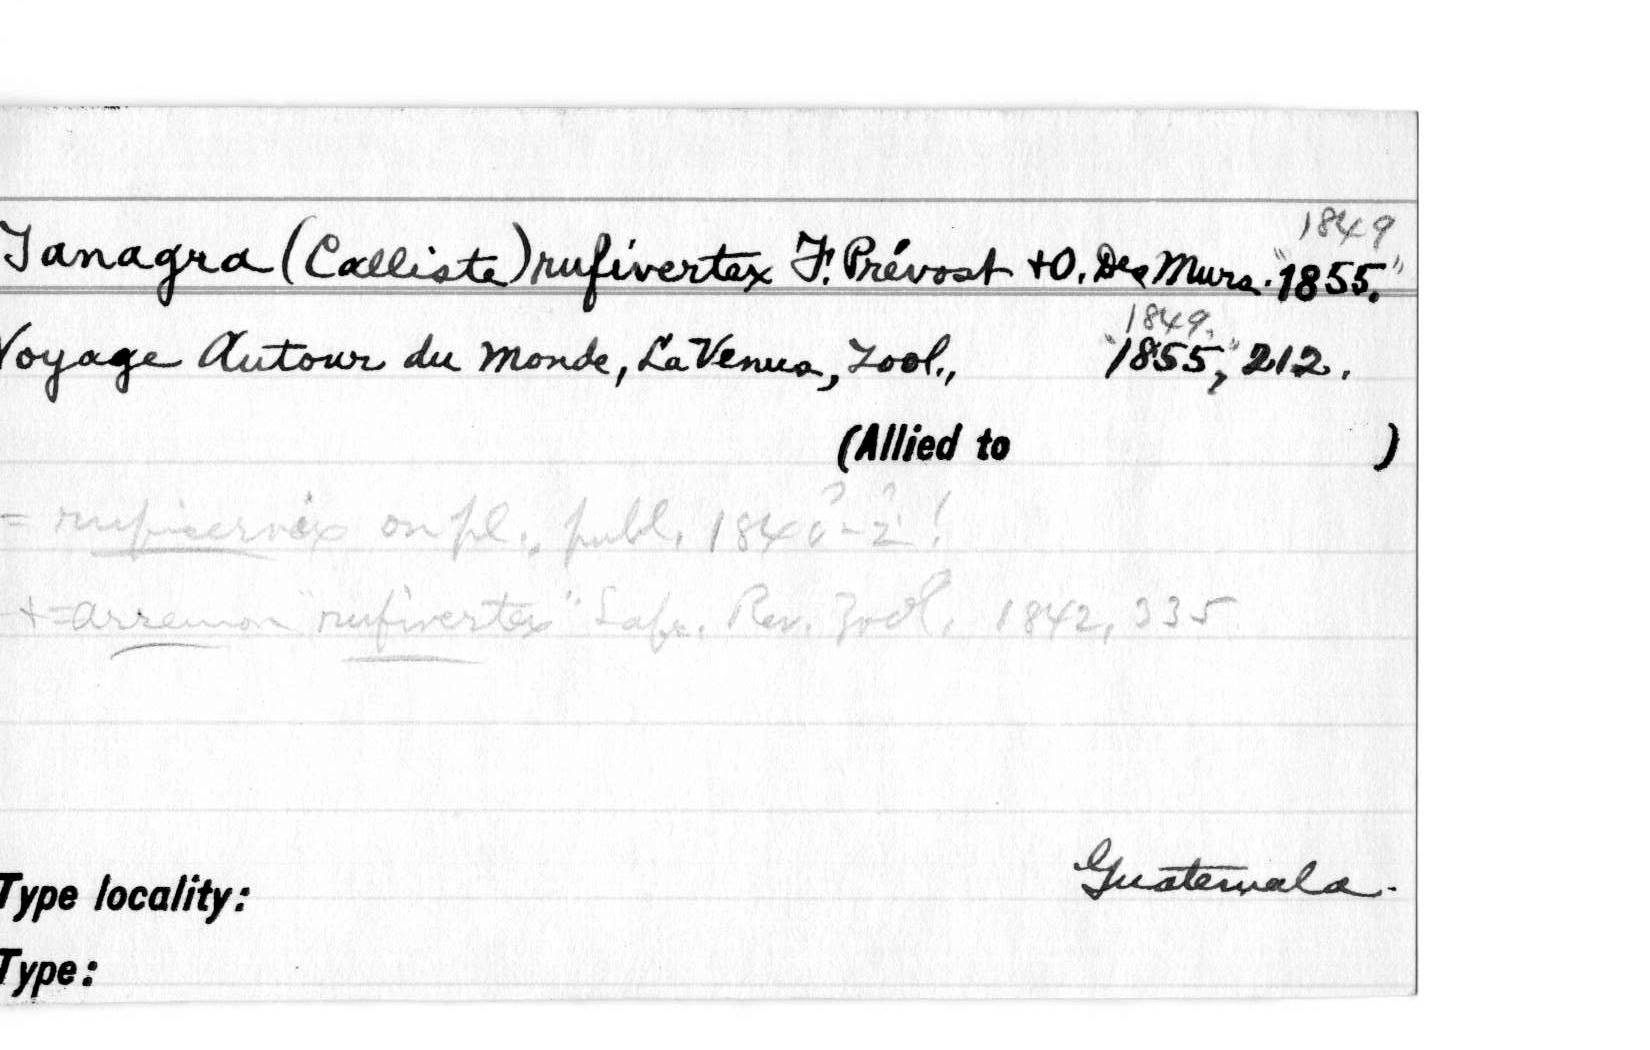 1849
Tanagra (Calliste) rufivertex F. Prévost + O. Des Murs. "1855."
1849.
Voyage Autour du Monde, La Venus, Zool., "1855," 212.
(Allied to )
= ruficervix on pl., publ. 184
+ = Arremon "rufivertex" Lafr. Rev. Zool. 1842, 335.
Type locality: Guatemala.
Type: